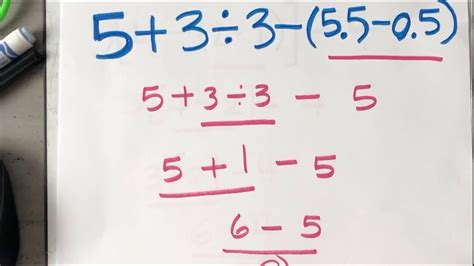 5+3÷3-(5.5-0.5)
5+3÷3 - 5
5+1-5
6-5